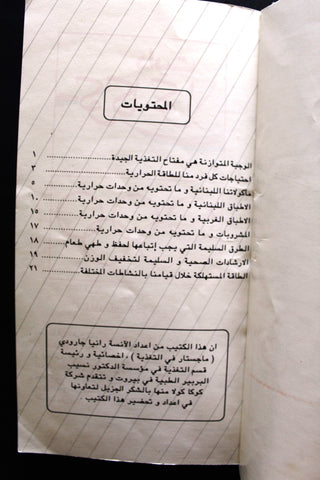 المحتويات
الوجبة المتوازنة هي مفتاح التغذية الجيدة ........................ ١
احتياجات كل فرد منا للطاقة الحرارية ........................ ٣
مأكولاتنا اللبنانية و ما تحتويه من وحدات حرارية ........................ ٥
الاطباق اللبنانية و ما تحتويه من وحدات حرارية ........................ ١٠
الاطباق الغربية و ما تحتويه من وحدات حرارية ........................ ١٥
المشروبات و ما تحتويه من وحدات حرارية ........................ ١٧
الطرق السليمة التي يجب إتباعها لحفظ و طهي طعام ........................ ١٨
الارشادات الصحية و السليمة لتخفيف الوزن ........................ ١٩
الطاقة المستهلكة خلال قيامنا بالنشاطات المختلفة ........................ ٢١
ان هذا الكتيب من اعداد الآنسة رانيا جارودي
( ماجستار في التغذية ) ، اخصائية و رئيسة
قسم التغذية في مؤسسة الدكتور نسيب
البربير الطبية في بيروت و تتقدم شركة
كوكا كولا منها بالشكر الجزيل لتعاونها
في اعداد و تحضير هذا الكتيب .